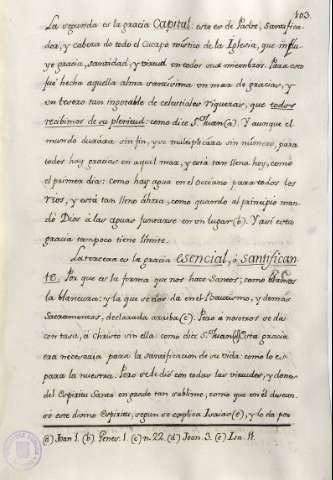 103.
La segunda es la gracia Capital: esto es de Padre, Santifica-
dor, y cabeza de todo el Cuerpo mistico de la Iglesia, que influ-
ye gracia, santidad, y virtud en todos sus miembros. Para esto
fué hecha aquella alma santissima un mar de gracias, y
un tesoro tan inagotable de celestiales riquezas, que todos
recibimos de su plenitud: como dice Sn. Juan (a). Y aunque el
mundo durára sin fin, y se multiplicára sin número, para
todos hay gracias en aquel mar, y está tan lleno hoy, como
el primer dia: como hay agua en el occeano para todos los
rios, y está tan lleno ahora, como quando al principio man-
dó Dios à las aguas juntarse en un lugar (b). Y assi esta
gracia tampoco tiene límite.
La tercera es la gracia esencial, ó santifican-
te. Por que es la forma que nos hace Santos; como blancos
la blancura: y la que se dá en el Bautismo, y demás
Sacramentos, declarada arriba (c). Pero á nosotros se da
con tasa, á Christo sin ella como dice Sn. Juan (d) Esta gracia
era necesaria para la santificacion de su vida: como lo es
para la nuestra. Pero se le dió con todas las virtudes, y dones
del Espiritu Santo en grado tan sublime, como que en él descan-
só este divino Espiritu, segun se explica Isaias (e), y lo da por
(a) Joan 1. (b) Genes. 1. (c) n. 22. (d) Joan. 3. (e) Isa. 11.